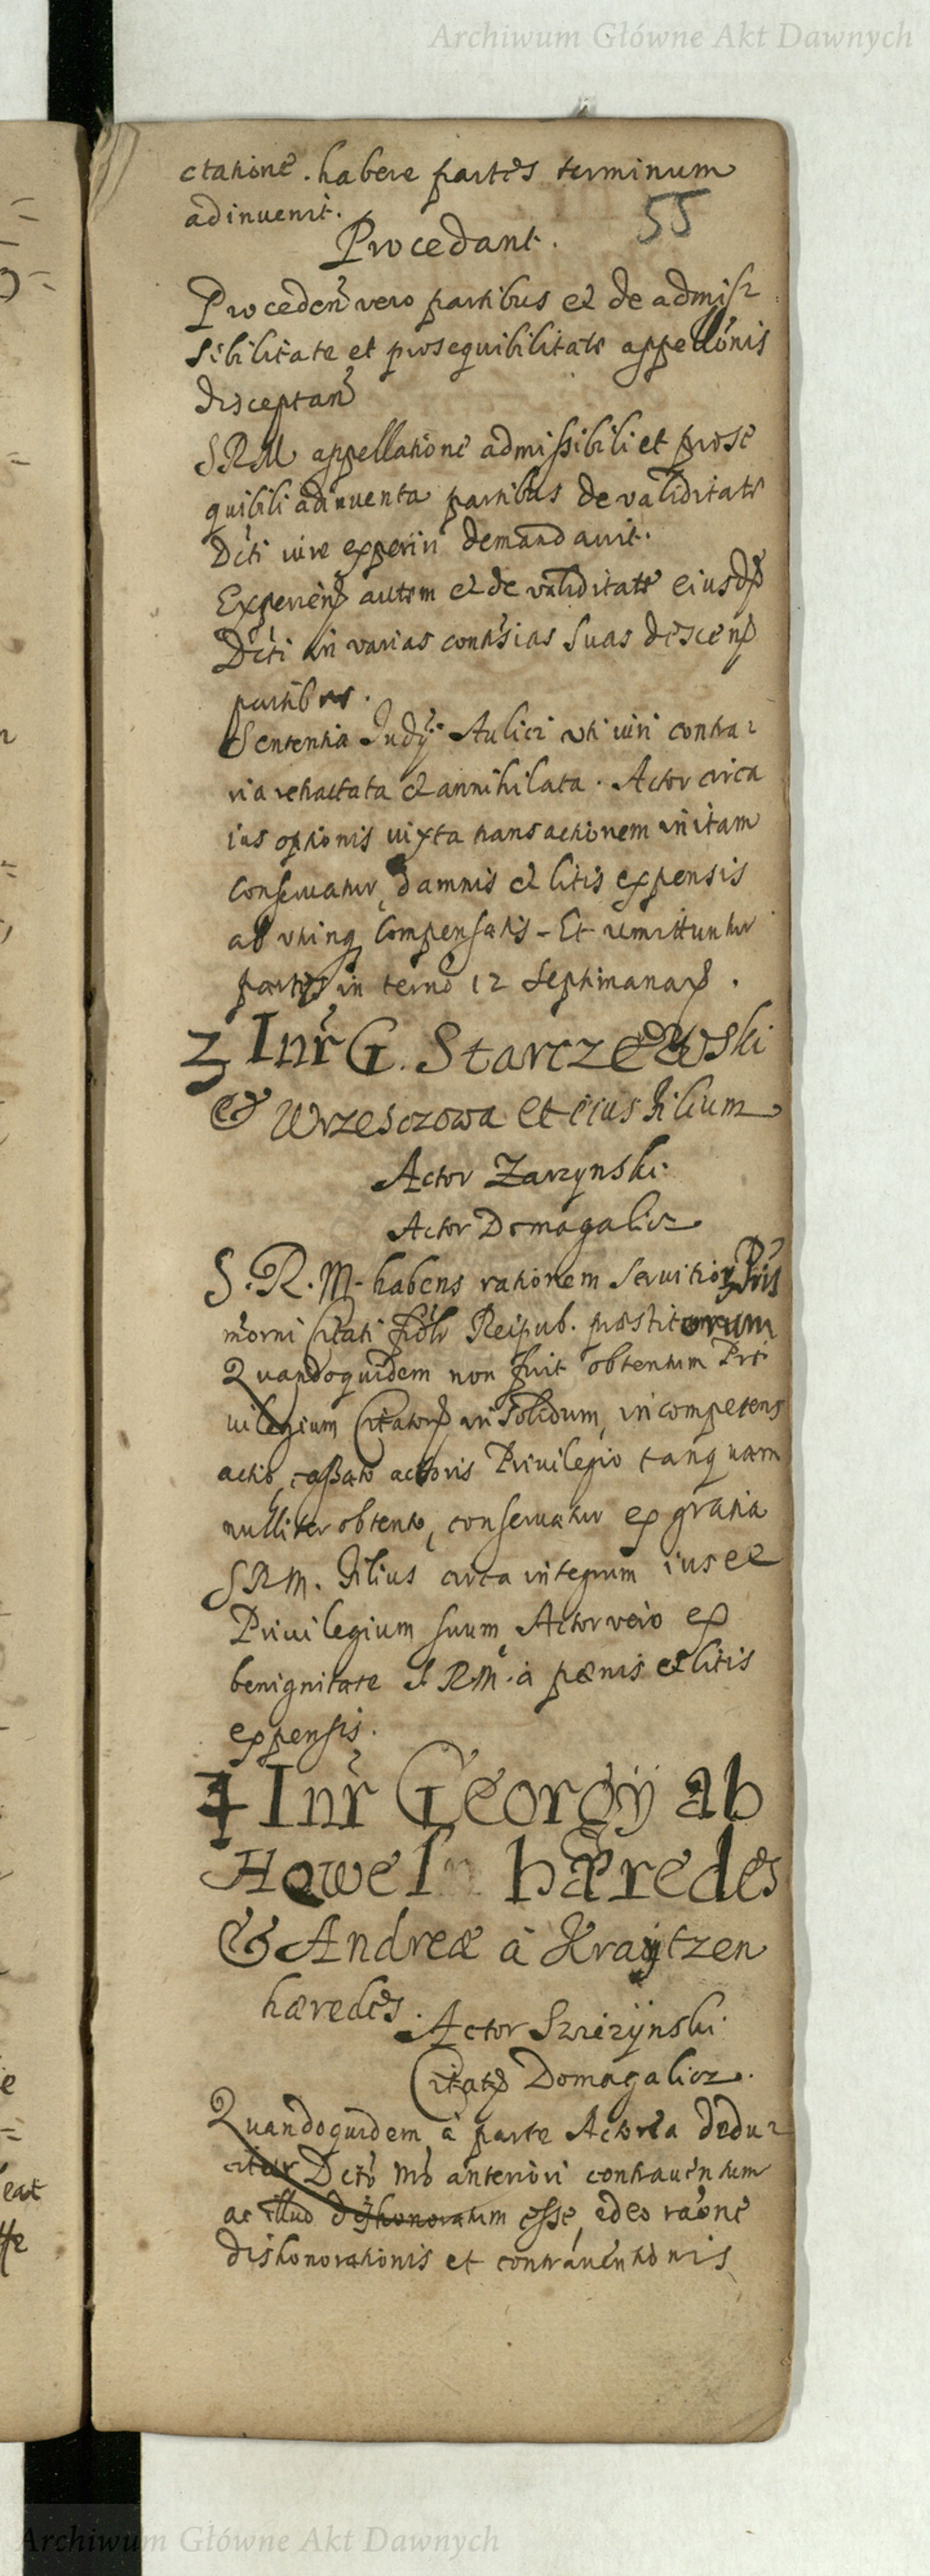 Archiwum Główne Akt Dawnych
ctatione. habere partes terminum
adinuenit.
55
Procedant.
Proceden vero partibus et de admis=
sibilitate et prosequibilitate appellonis
disceptan
SRM appellatione admissibili et prose
quibili adinuenta partibus de validitate
Dcti iure experiri demandauit.
Experien autem et de validitate eiusd
Dcti in varias contrsias suas descen
partibus.
Sententia Judy Aulici uti iuri contra=
ria retractata et annihilata. Actor circa
ius optionis iuxta transactionem initam
conseruatur, damnis et litis expensis
ab utrinq compensatis - Et remittuntur
partes in termo 12 septimanar.
3 Intr G. Starczewski
& Wrzesczowa et eius filium
Actor Zarzynski
Actor Domagalicz
S. R. M. habens rationem seruitior
morni Citati Reipub. præstitorum
Quandoquidem non fuit obtentum Pri
uilegium Citator in solidum, incompetens
actio, cassato actoris Priuilegio tanquam
nulliter obtento, conseruatur ex gratia
SRM. filius circa integrum ius et
Priuilegium suum Actor vero ex
benignitate S RM. à pænis et litis
expensis.
4 Intr Georgÿ ab
Howel hæredes
& Andreæ à Kraytzen
hæredes.
Actor Szrezÿnski
Citat Domagalicz.
Quandoquidem à parte Actorea dedu=
citur Dcto mo anteriori contrauentum
ac illud dishonoratum esse, ideo raone
dishonorationis et contrauentionis
Archiwum Główne Akt Dawnych